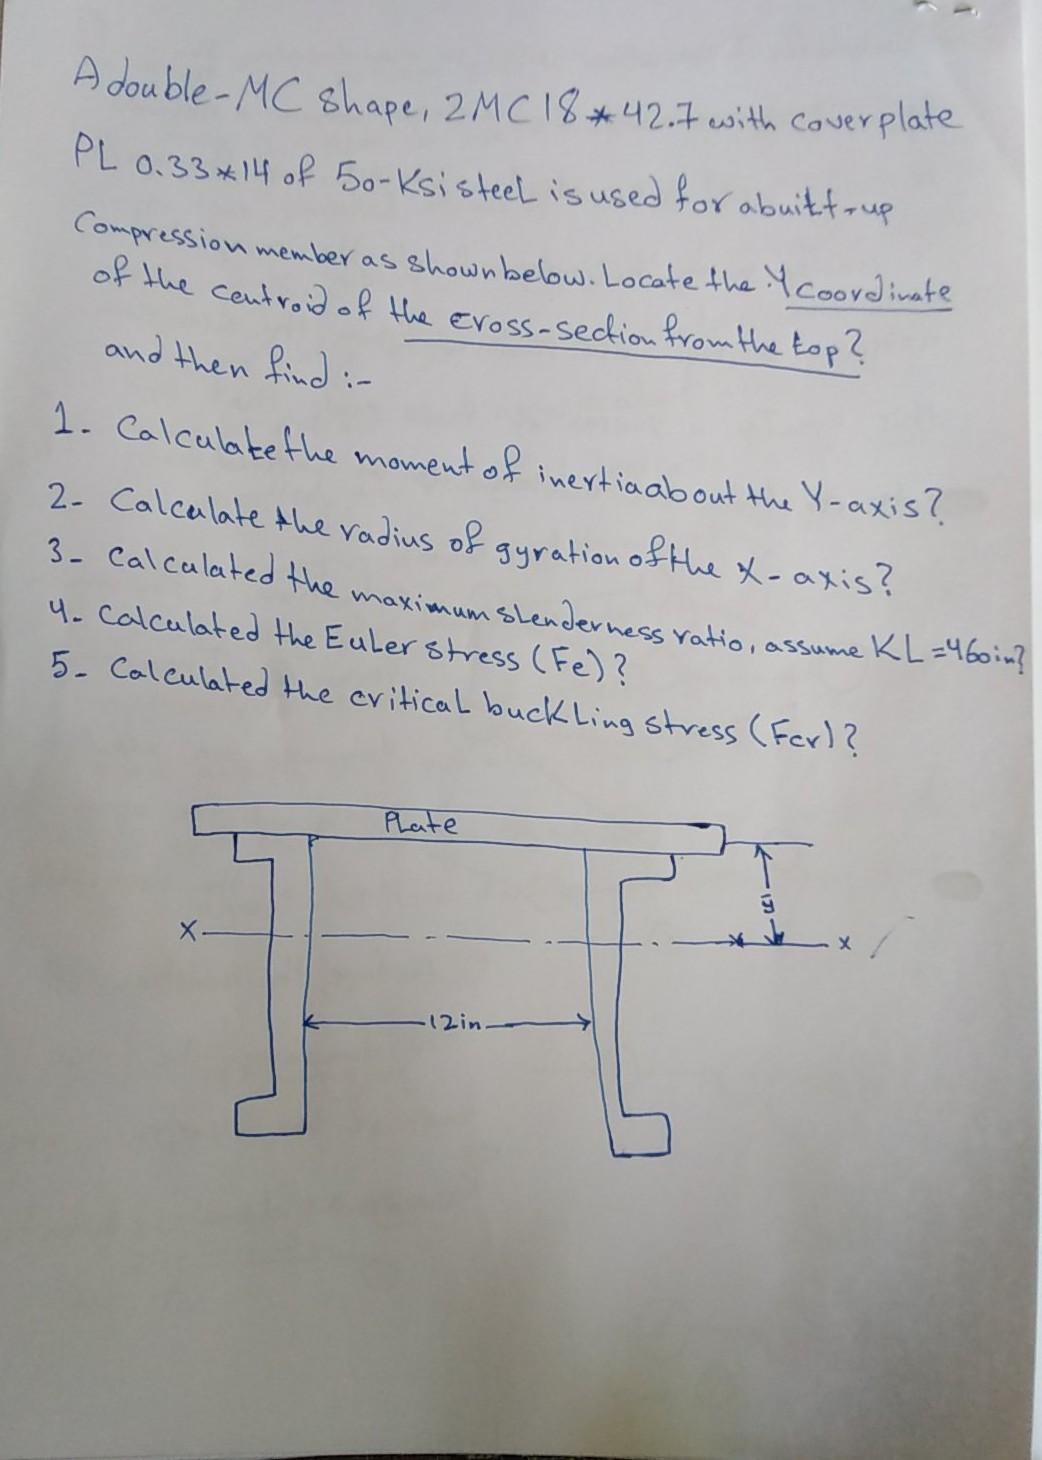 A double-MC shape, 2MC18*42.7 with coverplate
PL 0.33*14 of 50-Ksi steel is used for abuilt-up
Compression member as shown below. Locate the Y coordinate
of the centroid of the cross-section from the top?
and then find :-
1- Calculate the moment of inertia about the Y-axis?
2- Calculate the radius of gyration of the X-axis?
3- Calculated the maximum slenderness ratio, assume KL=460in?
4- Calculated the Euler stress (Fe)?
5- Calculated the critical buckling stress (Fcr)?
Plate
ȳ
X
x
12in